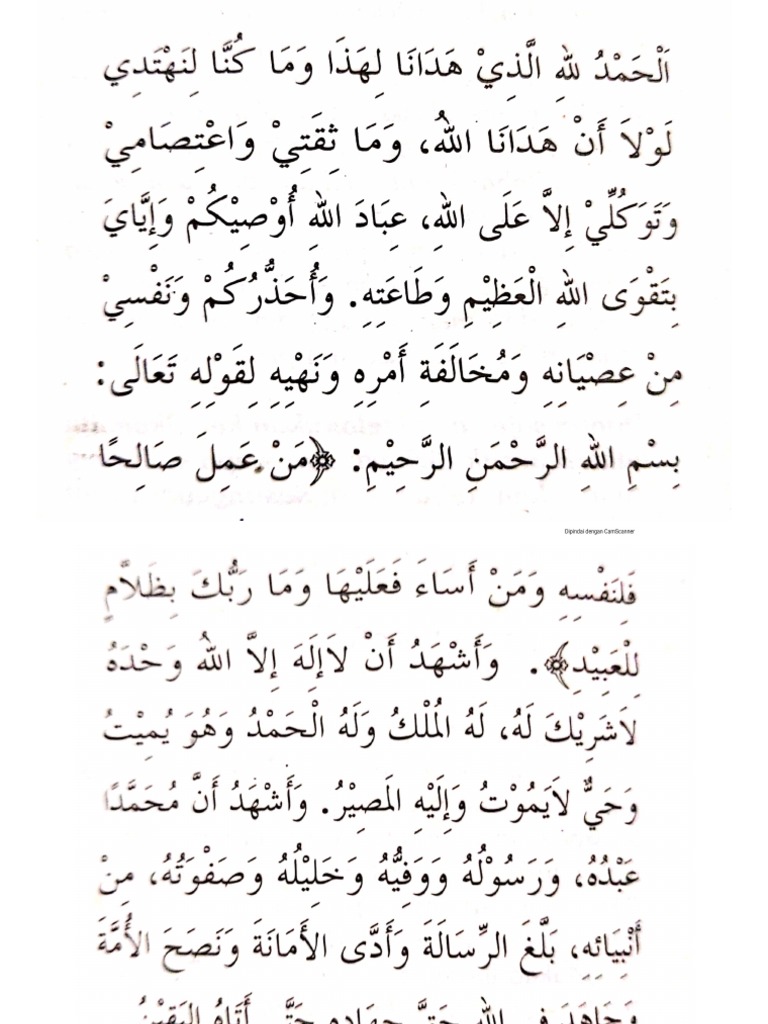 اَلْحَمْدُ للهِ الَّذِيْ هَدَانَا لِهَذَا وَمَا كُنَّا لِنَهْتَدِي
لَوْلاَ أَنْ هَدَانَا اللهُ، وَمَا ثِقَتِيْ وَاعْتِصَامِيْ
وَتَوَكُلِّيْ إِلاَّ عَلَى اللهِ، عِبَادَ اللهِ أُوْصِيْكُمْ وَإِيَّايَ
بِتَقْوَى اللهِ الْعَظِيْمِ وَطَاعَتِهِ. وَأُحَذُّرُكُمْ وَنَفْسِيْ
مِنْ عِصْيَانِهِ وَمُخَالَفَةِ أَمْرِهِ وَنَهْيِهِ لِقَوْلِهِ تَعَالَى:
بِسْمِ اللهِ الرَّحْمَنِ الرَّحِيْمِ: ﴿مَنْ عَمِلَ صَالِحًا
Dipindai dengan CamScanner
فَلِنَفْسِهِ وَمَنْ أَسَاءَ فَعَلَيْهَا وَمَا رَبُّكَ بِظَلاَّمٍ
لِلْعَبِيْدِ﴾. وَأَشْهَدُ أَنْ لاَإِلَهَ إِلاَّ اللهُ وَحْدَهُ
لاَشَرِيْكَ لَهُ، لَهُ الْمُلْكُ وَلَهُ الْحَمْدُ وَهُوَ يُمِيْتُ
وَحَيٌّ لاَيَمُوْتُ وَإِلَيْهِ الْمَصِيْرُ. وَأَشْهَدُ أَنَّ مُحَمَّدًا
عَبْدُهُ، وَرَسُوْلُهُ وَوَفِيُّهُ وَخَلِيْلُهُ وَصَفْوَتُهُ، مِنْ
أَنْبِيَائِهِ، بَلَّغَ الرِّسَالَةَ وَأَدَّى الأَمَانَةَ وَنَصَحَ الأُمَّةَ
وَجَاهَدَ فِي اللهِ حَقَّ جِهَادِهِ حَتَّى أَتَاهُ الْيَقِيْنُ